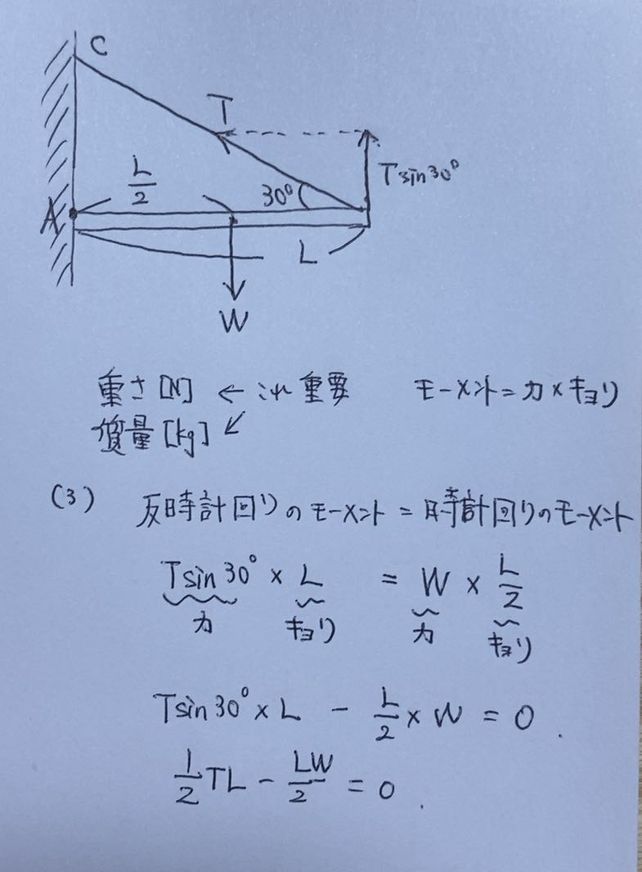 C
T
Tsin30°
L/2
30°
A
L
W
重さ[N] ← これ重要 モーメント=力×キョリ
質量[kg] ↙
(3) 反時計回りのモーメント=時計回りのモーメント
Tsin30° × L = W × L/2
力 キョリ 力 キョリ
Tsin30° × L - L/2 × W = 0.
1/2 TL - LW/2 = 0.